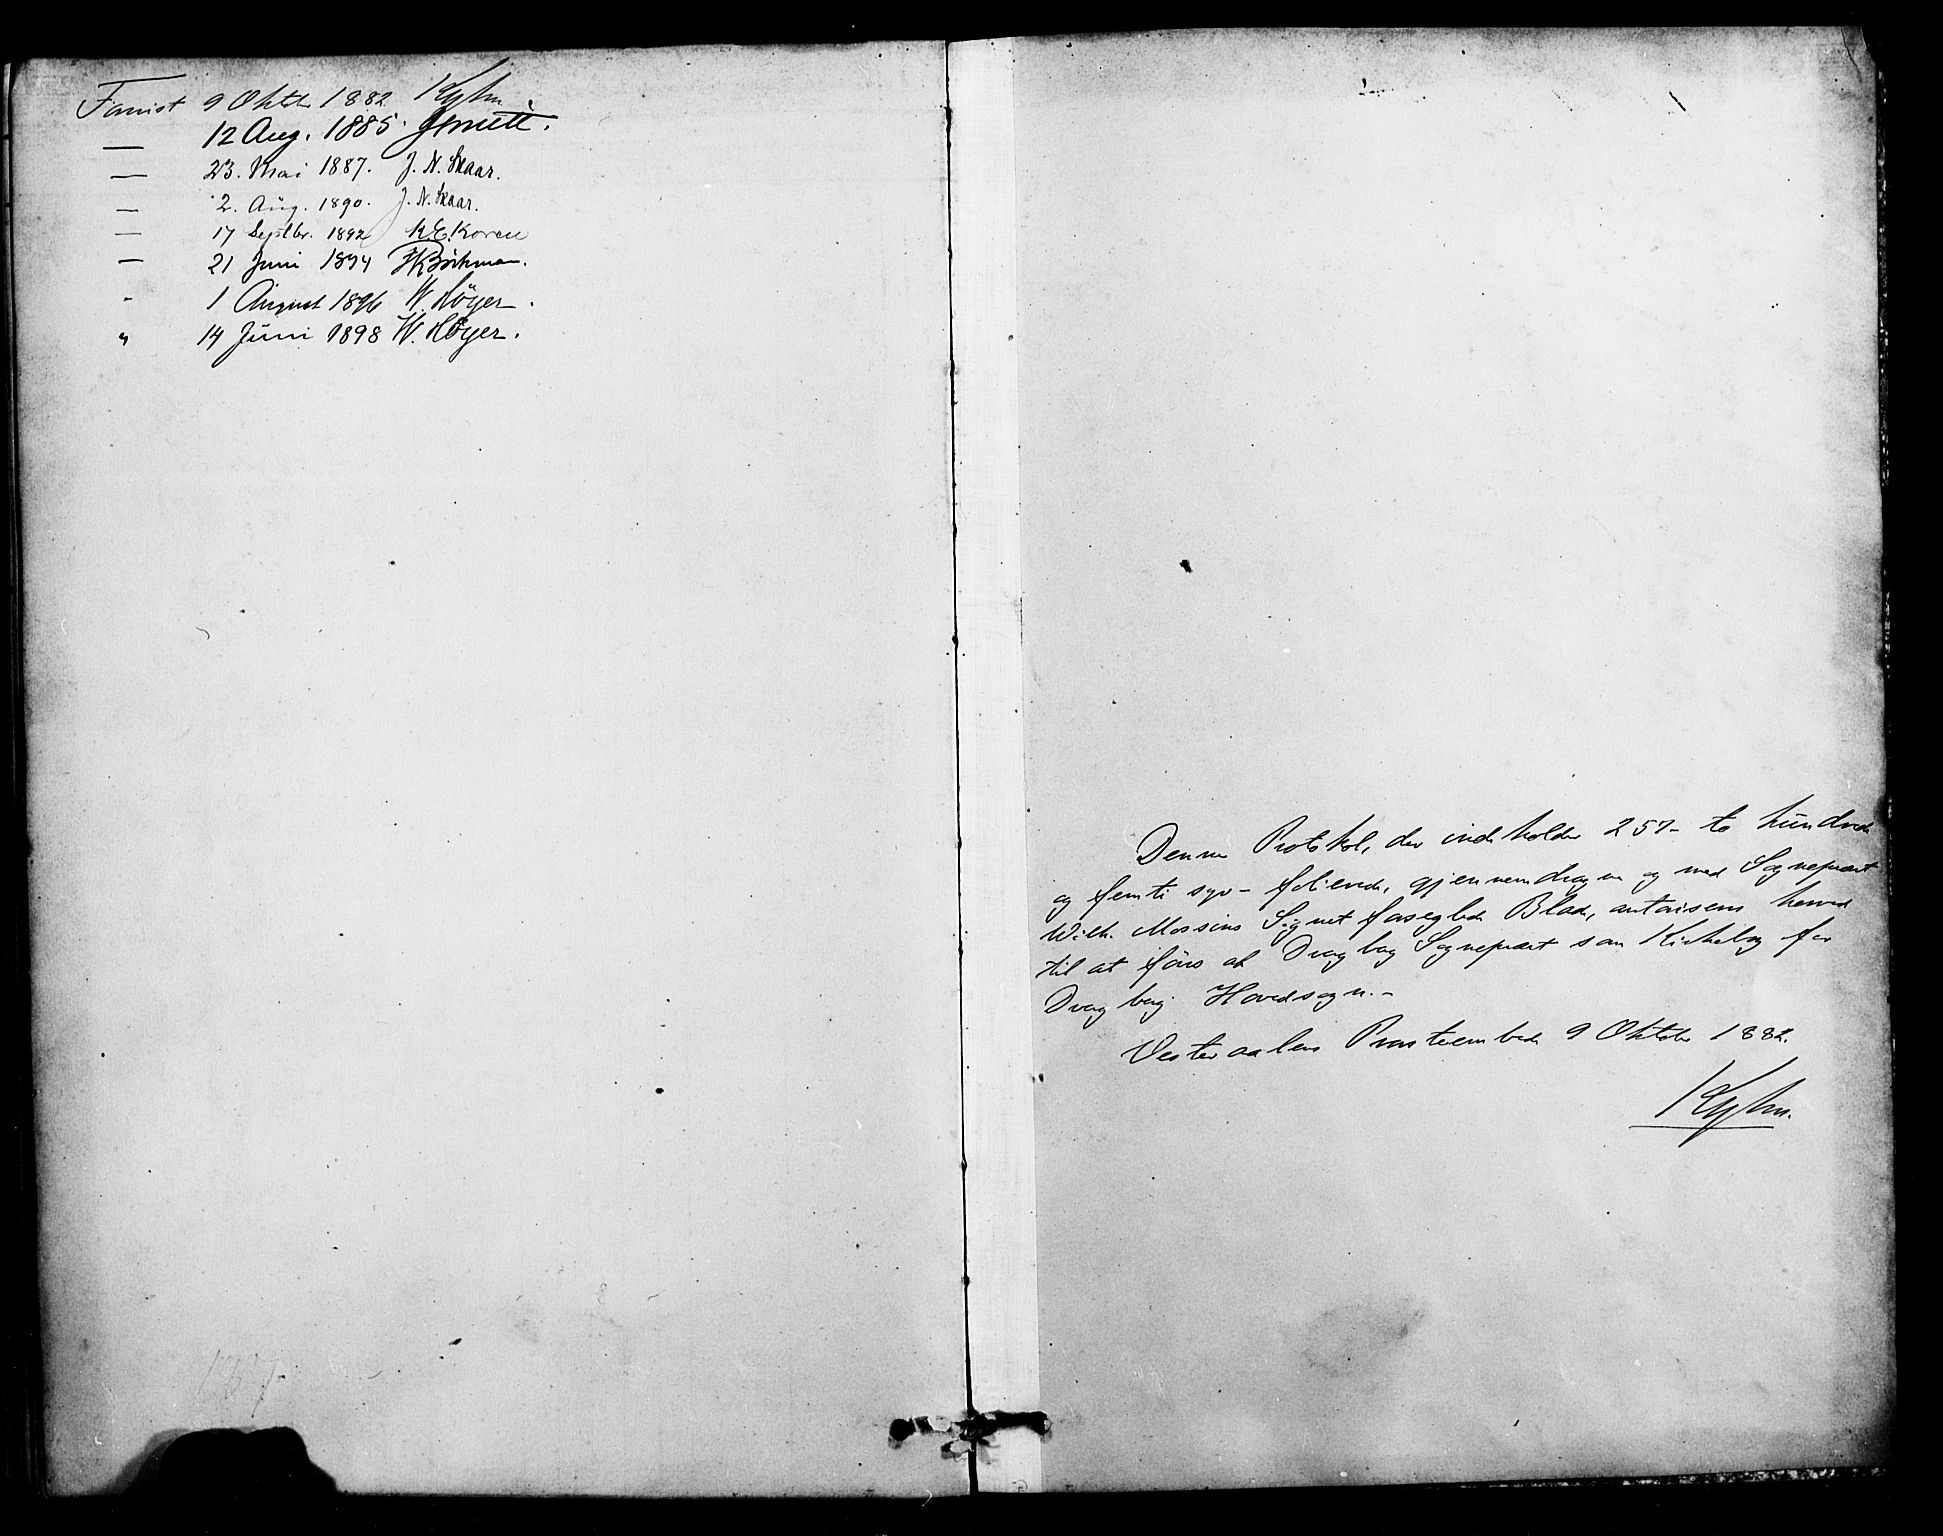 Forvist 9 Oktbr 1882 Kyhn.
— 12 Aug. 1885.
— 23. Mai 1887. J. N. Skaar.
— 2. Aug. 1890. J. N. Skaar.
— 17 Septbr. 1892 K. E. Koren
— 21 Juni 1894 Bøckman.
" 1 August 1896 W. Høyer.
" 14 Juni 1898 W. Høyer.
Denne Protokol, der indeholder 257 - to hundrede
og femti syv - folierede, gjennemdragne og med Sogneprest
Wilh. Signet forseglede Blade, autoriseres herved
til at føres af Dverberg Sogneprest som Kirkebog for
Dverberg Hovedsogn. -
Vesteraalens Provsteembede 9 Oktober 1882.
Kyhn.